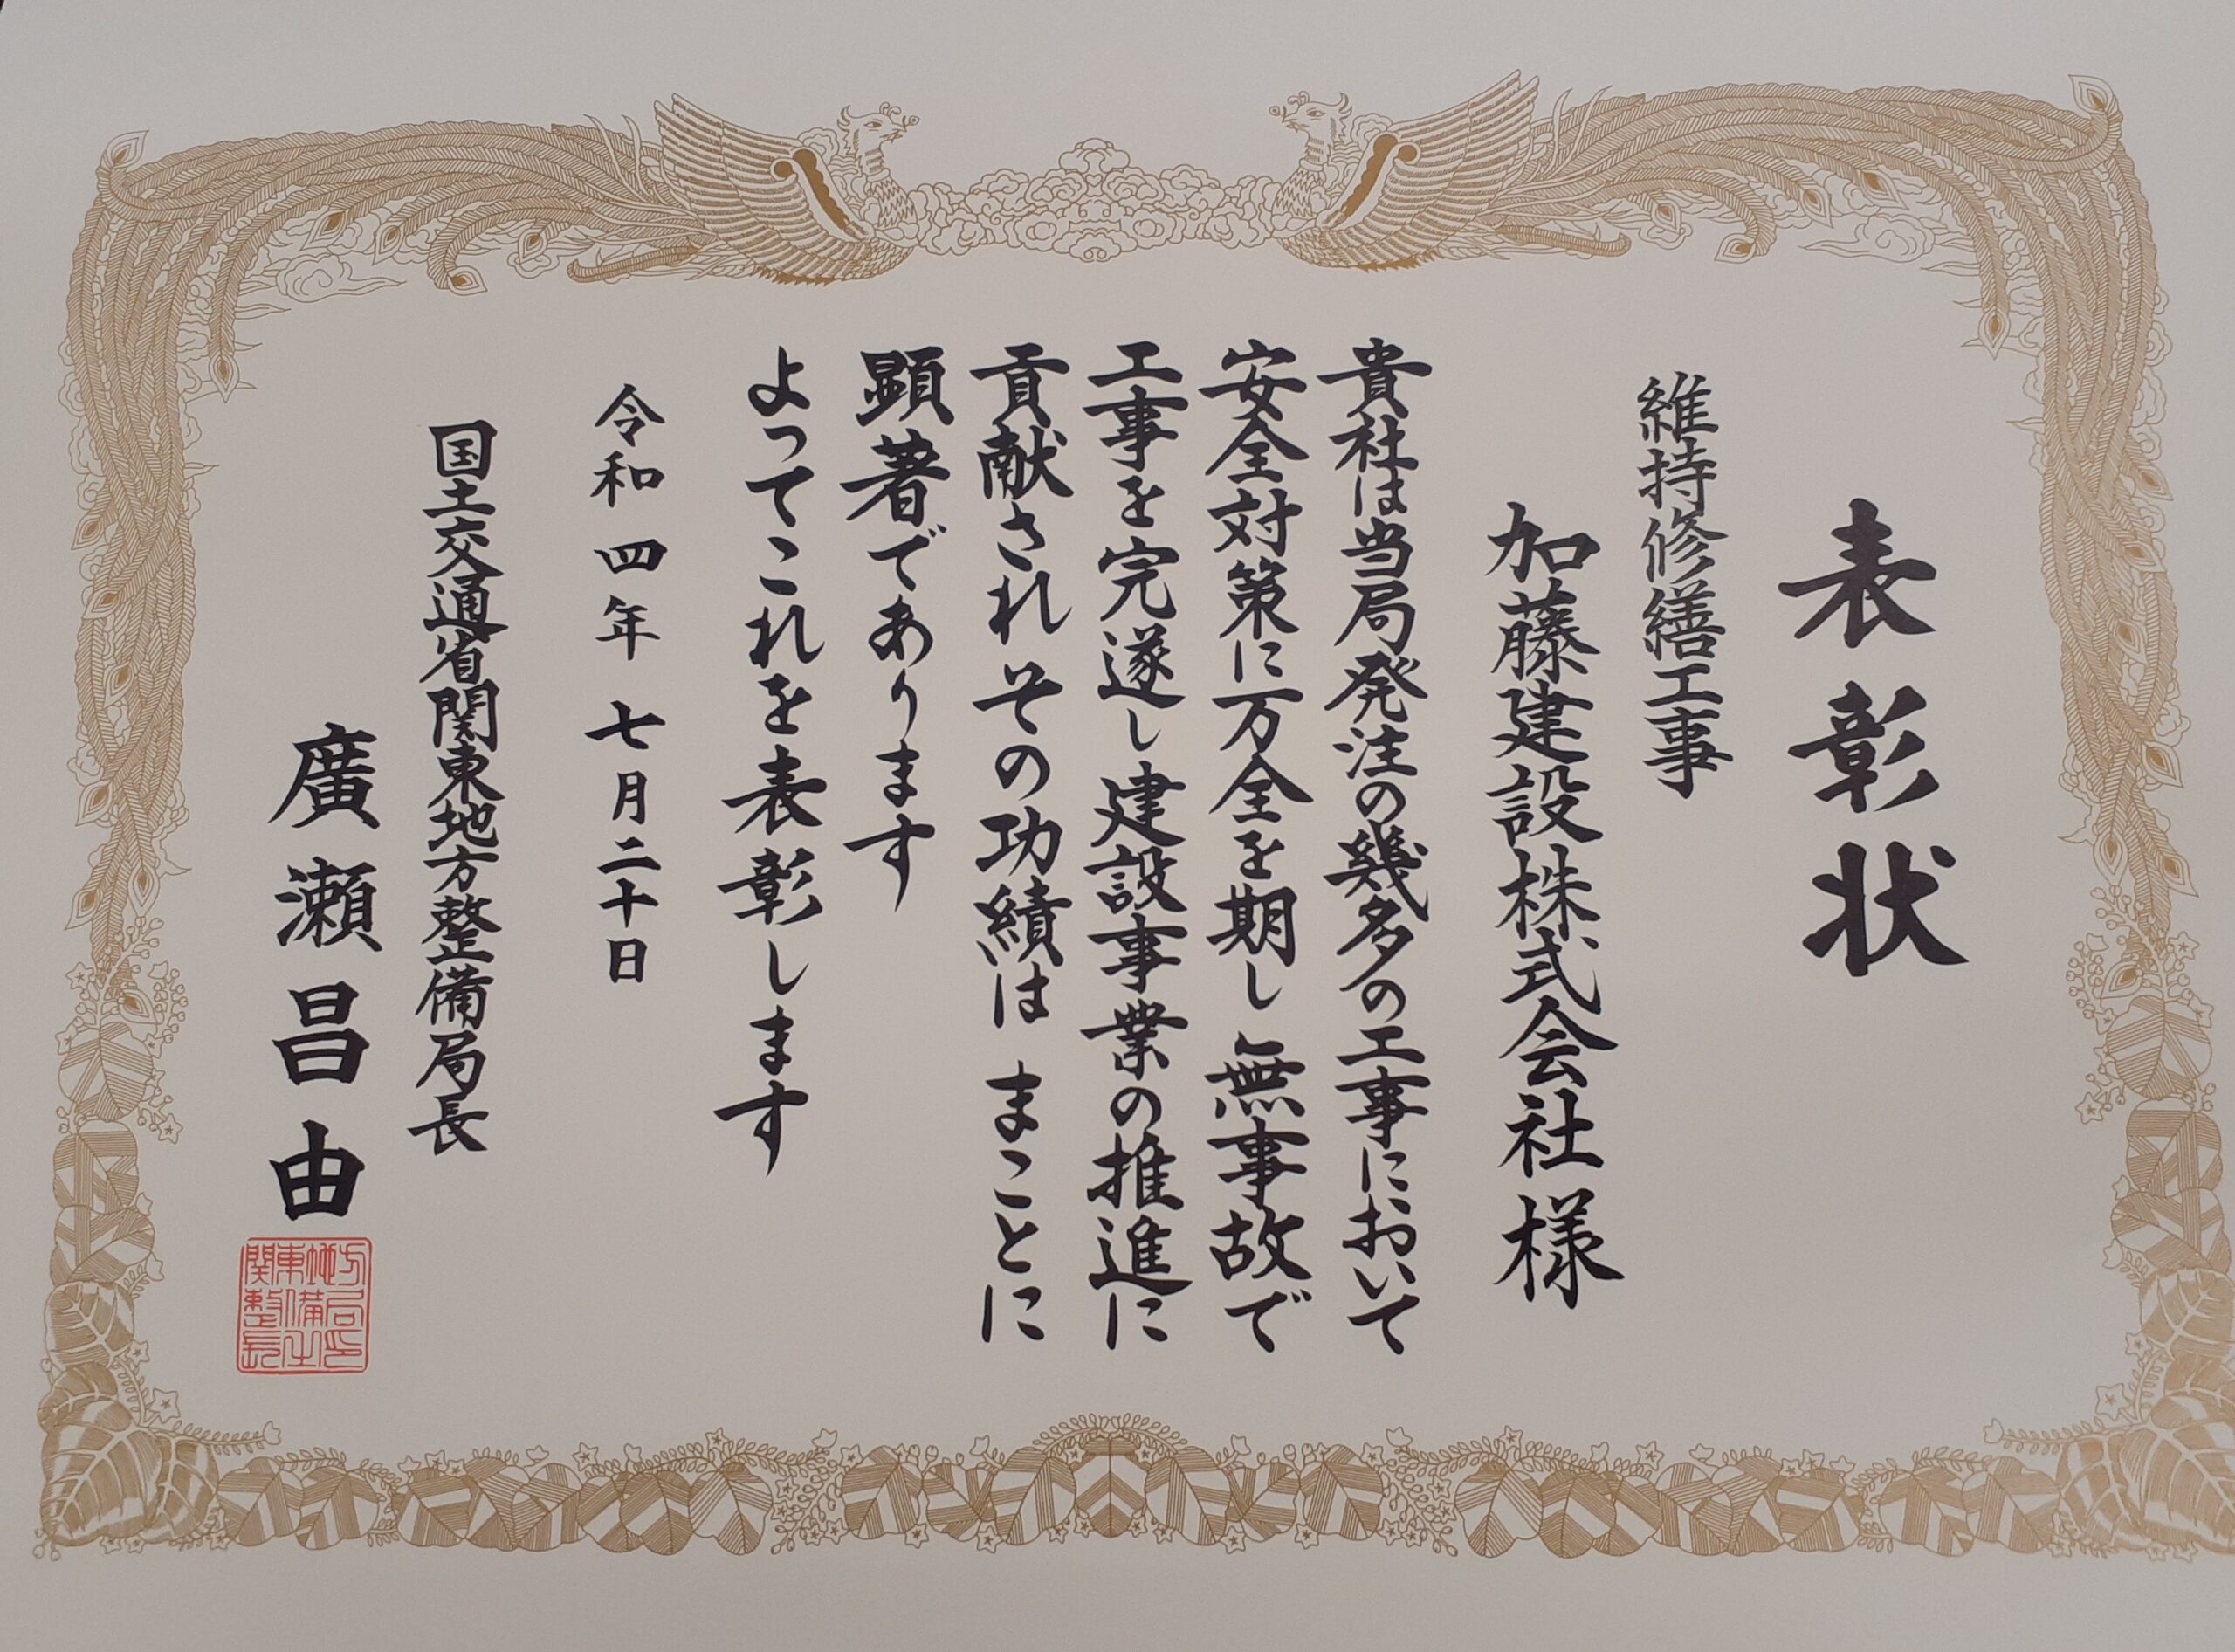 表彰状
維持修繕工事
加藤建設株式会社様
貴社は当局発注の幾多の工事において
安全対策に万全を期し 無事故で
工事を完遂し 建設事業の推進に
貢献され その功績は まことに
顕著であります
よってこれを表彰します
令和四年七月二十日
国土交通省関東地方整備局長
廣瀬昌由
関東地方
整備局
長之印